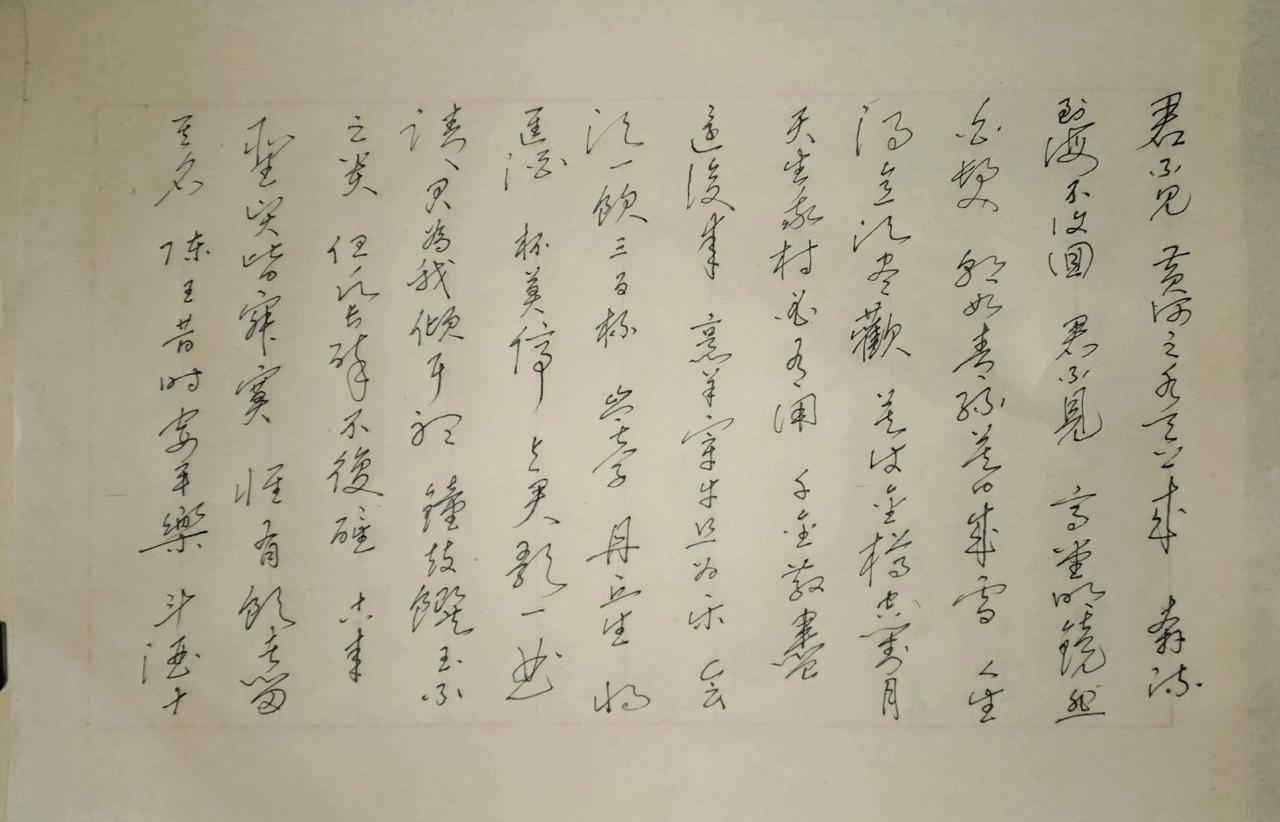 君不見 黃河之水天上來 奔流
到海不復回 君不見 高堂明鏡悲
白髮 朝如青絲暮成雪 人生
得意須盡歡 莫使金樽空對月
天生我材必有用 千金散盡
還復來 烹羊宰牛且為樂 會
須一飲三百杯 岑夫子 丹丘生 將
進酒 杯莫停 與君歌一曲
請君為我傾耳聽 鐘鼓饌玉不
足貴 但願長醉不復醒 古來
聖賢皆寂寞 惟有飲者留
其名 陳王昔時宴平樂 斗酒十